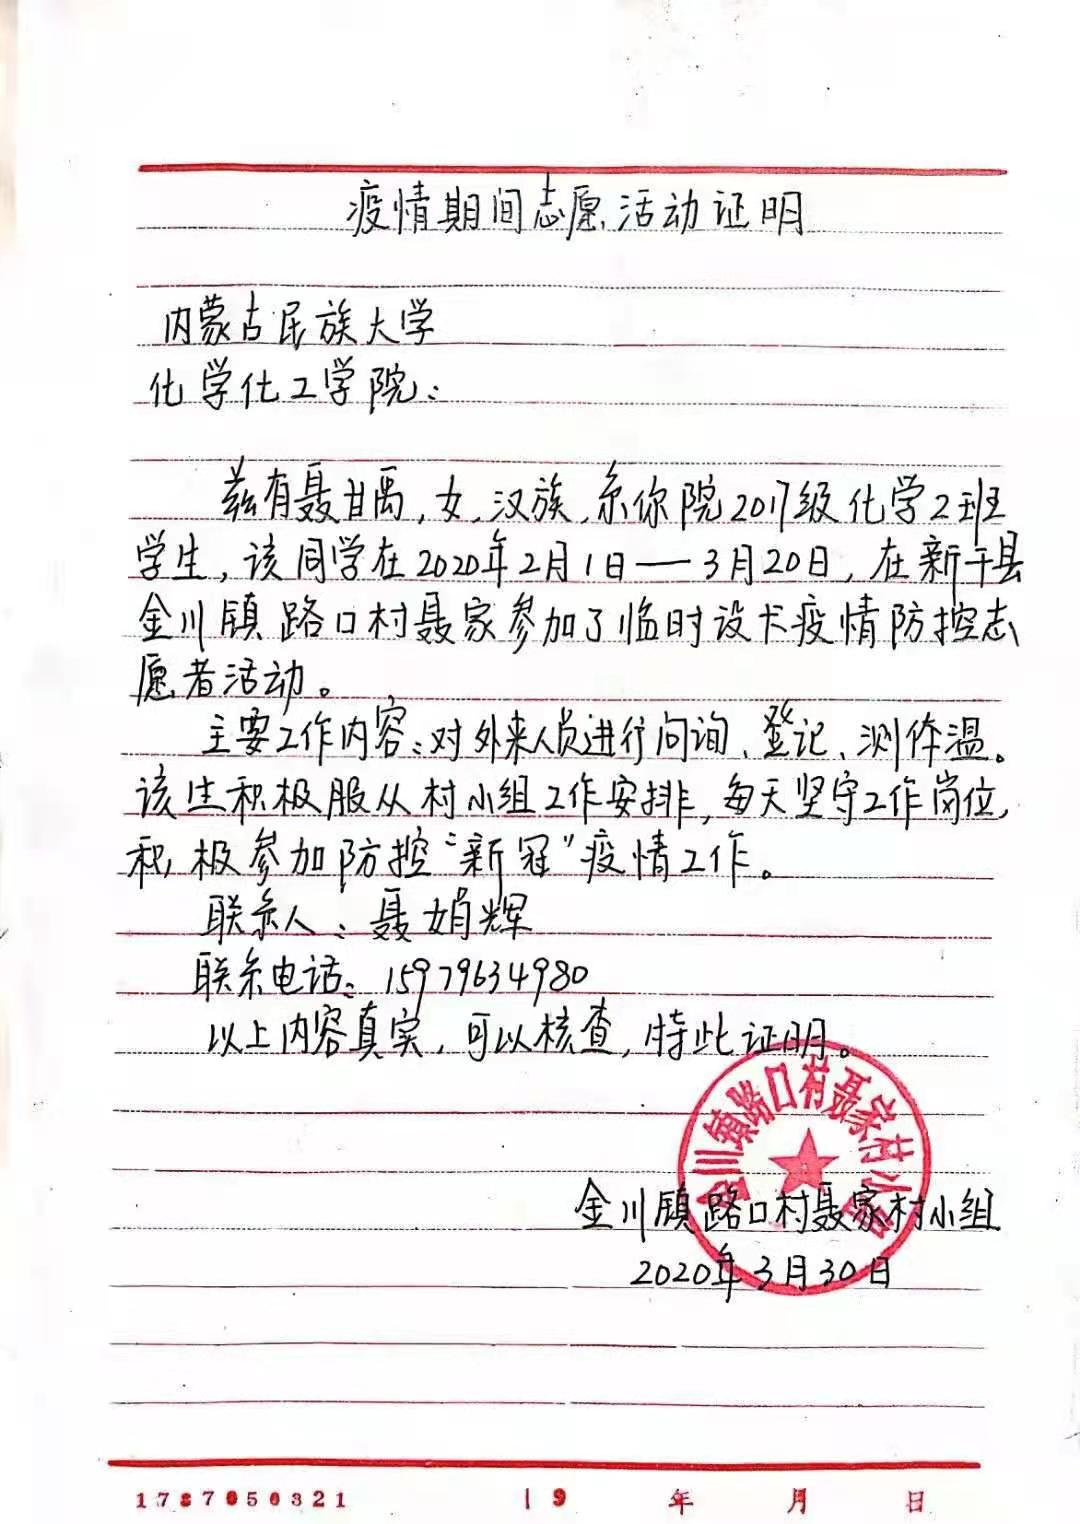 疫情期间志愿活动证明
内蒙古民族大学
化学化工学院：
兹有聂甘禹，女，汉族，系你院2017级化学2班
学生，该同学在2020年2月1日——3月20日，在新干县
金川镇路口村聂家参加了临时设卡疫情防控志
愿者活动。
主要工作内容：对外来人员进行问询、登记、测体温。
该生积极服从村小组工作安排，每天坚守工作岗位，
积极参加防控“新冠”疫情工作。
联系人：聂娟辉
联系电话：15979634980
以上内容真实，可以核查，特此证明。
金川镇路口村聂家村小组
金川镇路口村聂家村小组
2020年3月30日
1787050321 19 年 月 日